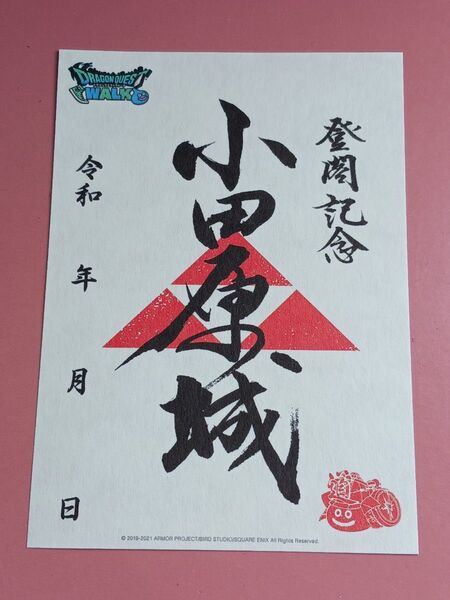 DRAGON QUEST
WALK
登閣記念
小田原城
令和 年 月 日
道
© 2019-2021 ARMOR PROJECT/BIRD STUDIO/SQUARE ENIX All Rights Reserved.